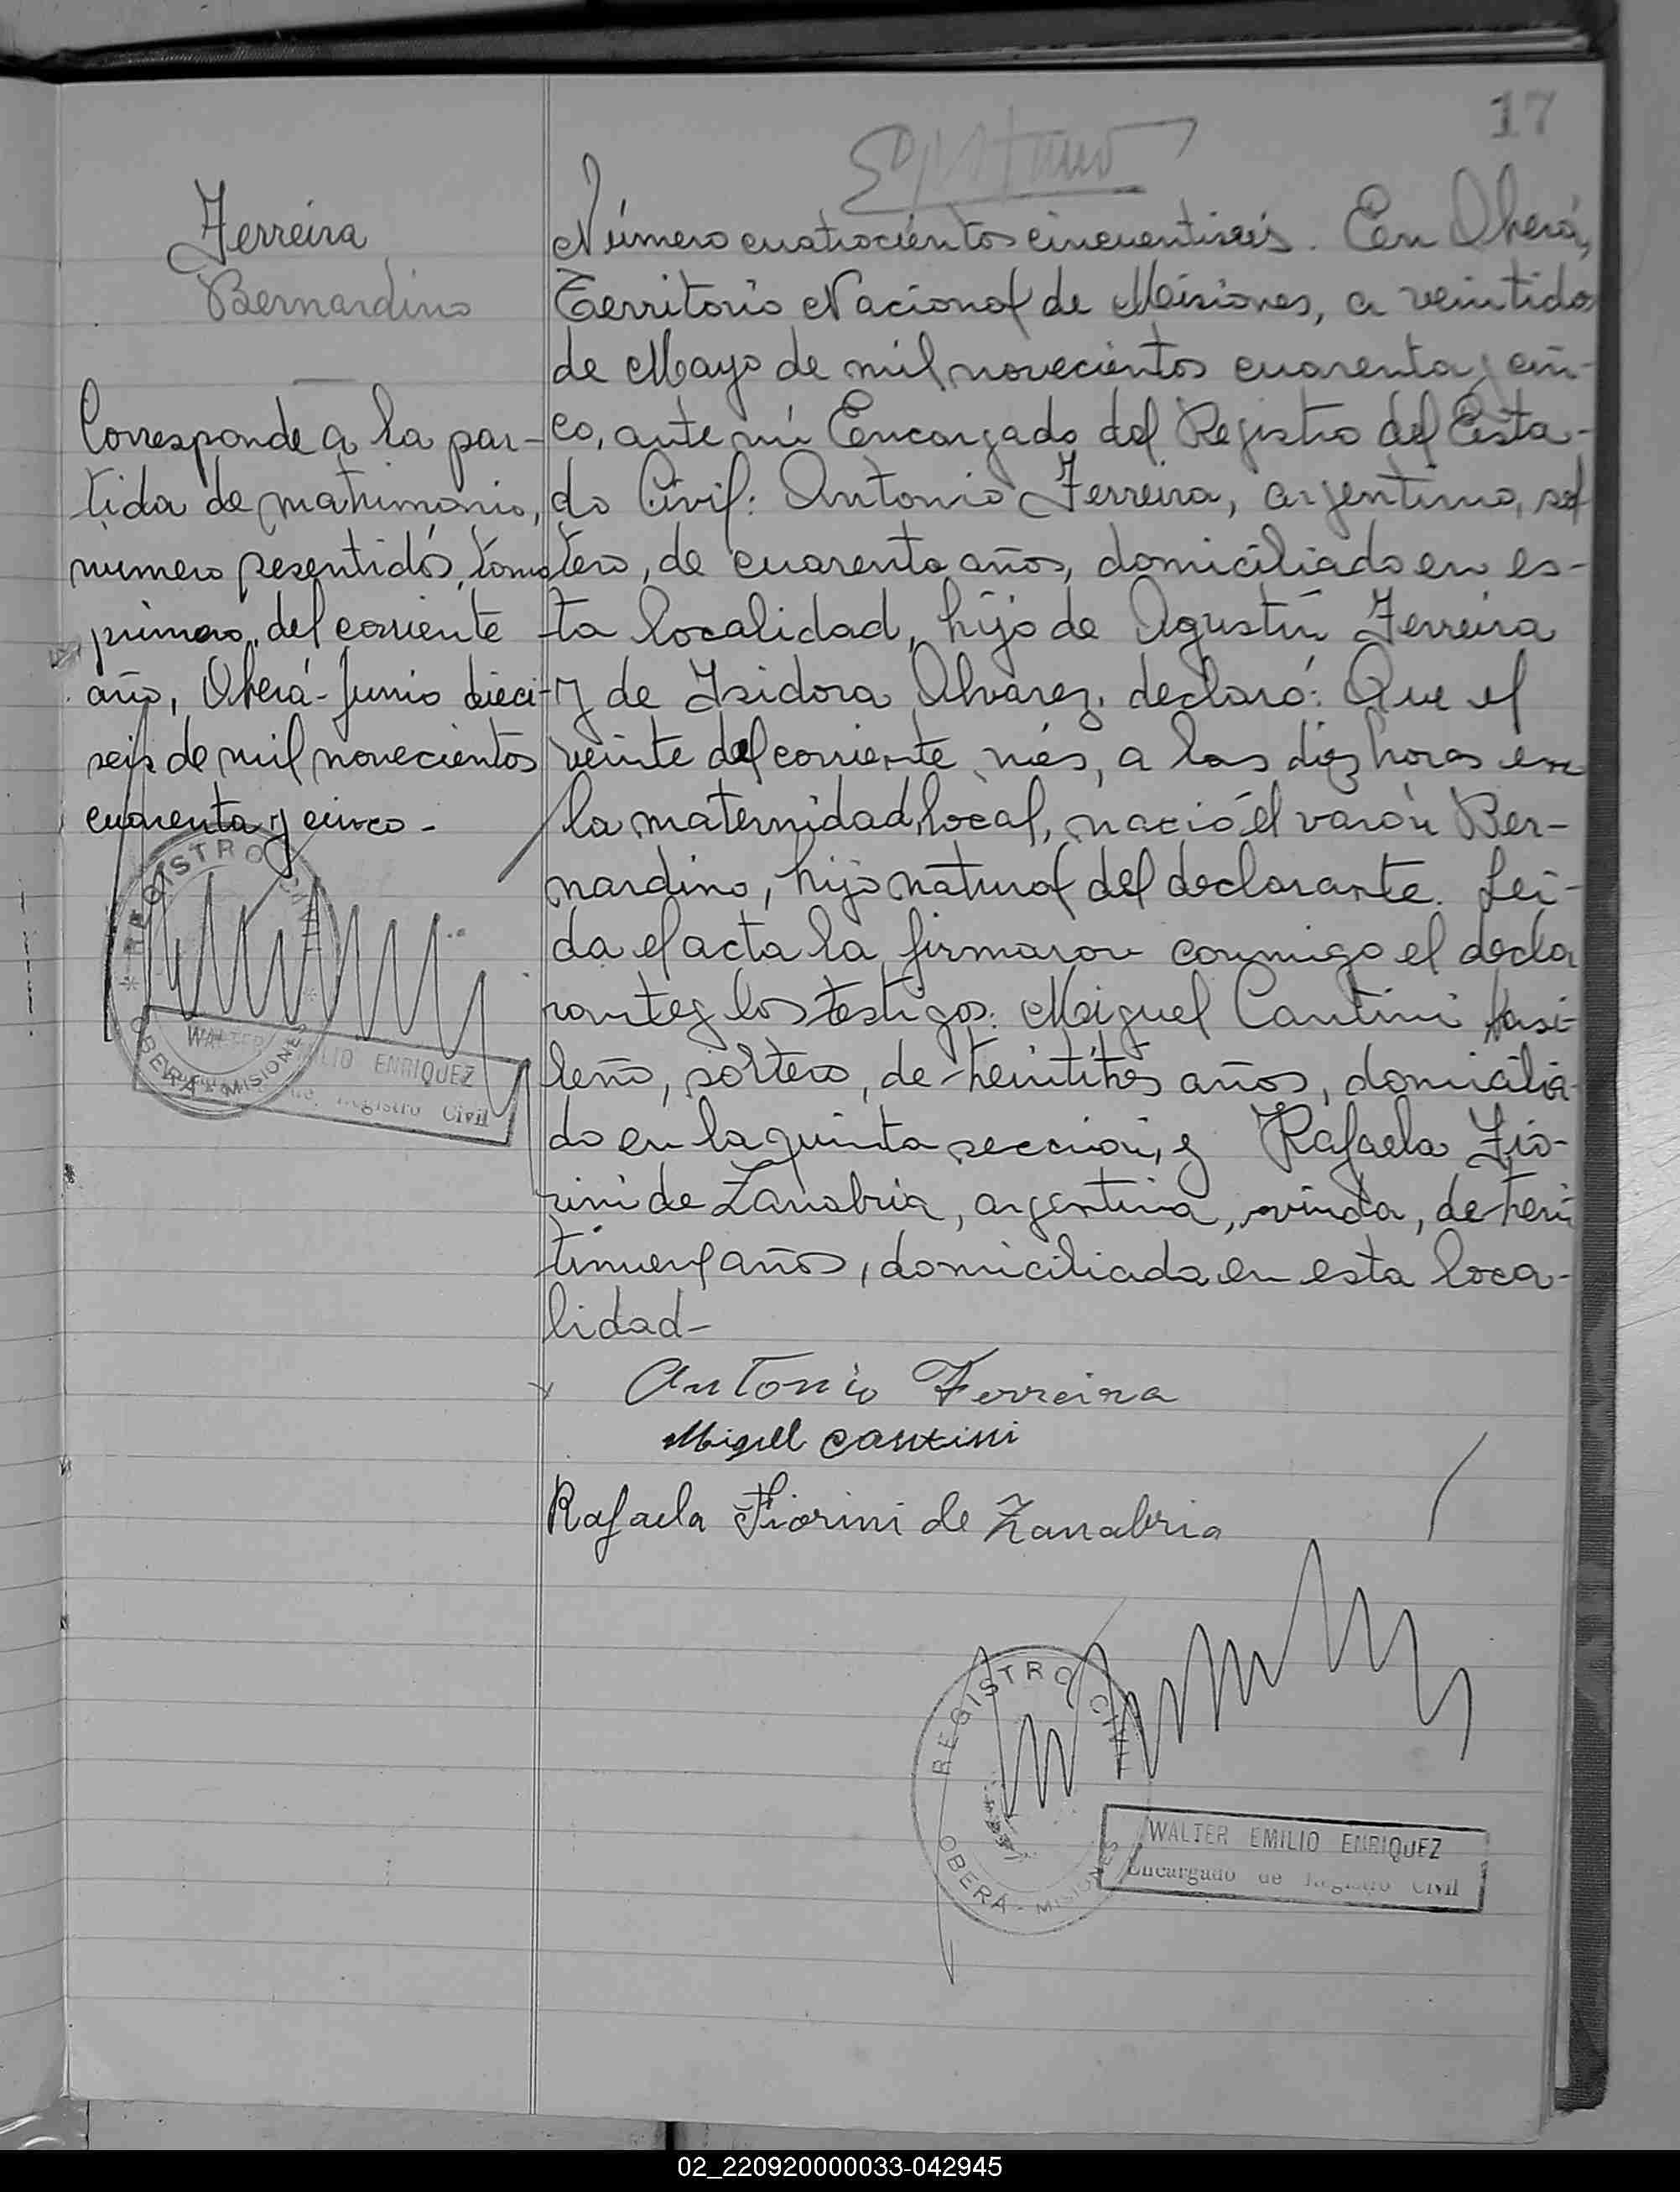 17
Ferreira
Bernardino
Corresponde a la par-
tida de matrimonio,
numero sesentidós, tomo
primero, del corriente
año, Oberá - Junio dieci-
seis de mil novecientos
cuarenta y cinco -
REGISTRO CIVIL
OBERÁ - MISIONES
WALTER EMILIO ENRIQUEZ
Registro Civil
Número cuatrocientos cincuentiseis. En Oberá,
Territorio Nacional de Misiones, a veintidos
de Mayo de mil novecientos cuarenta y cin-
co, ante mí Encargado del Registro del Esta-
do Civil: Antonio Ferreira, argentino, sol
tero, de cuarenta años, domiciliado en es-
ta localidad, hijo de Agustín Ferreira
y de Isidora Alvarez, declaró: Que el
veinte del corriente més, a las diez horas en
la maternidad local, nació el varón Ber-
nardino, hijo natural del declarante. Lei-
da el acta la firmaron conmigo el decla
rante y los testigos: Miguel Cantini brasi-
leño, soltero, de treintitrés años, domicilia-
do en la quinta sección, y Rafaela Fio-
rini de Zanabria, argentina, viuda, de trein
tinueve años, domiciliada en esta loca-
lidad -
Antonio Ferreira
Miguel Cantini
Rafaela Fiorini de Zanabria
REGISTRO CIVIL
OBERÁ - MISIONES
WALTER EMILIO ENRIQUEZ
Encargado de Registro Civil
02_220920000033-042945